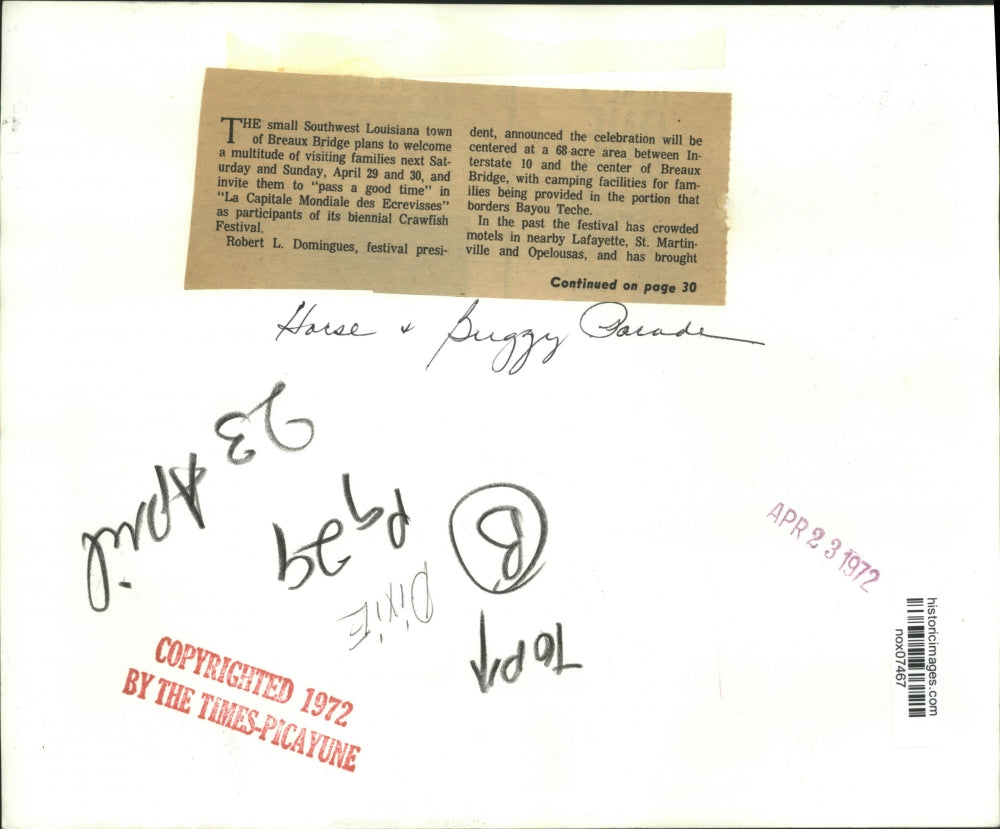 THE small Southwest Louisiana town
of Breaux Bridge plans to welcome
a multitude of visiting families next Sat-
urday and Sunday, April 29 and 30, and
invite them to “pass a good time” in
“La Capitale Mondiale des Ecrevisses”
as participants of its biennial Crawfish
Festival.
Robert L. Domingues, festival presi-
dent, announced the celebration will be
centered at a 68-acre area between In-
terstate 10 and the center of Breaux
Bridge, with camping facilities for fam-
ilies being provided in the portion that
borders Bayou Teche.
In the past the festival has crowded
motels in nearby Lafayette, St. Martin-
ville and Opelousas, and has brought
Continued on page 30
Horse & Buggy Parade
23 April
Pg 29
B
Dixie
Top
APR 23 1972
COPYRIGHTED 1972
BY THE TIMES-PICAYUNE
historicimages.com
nox07467